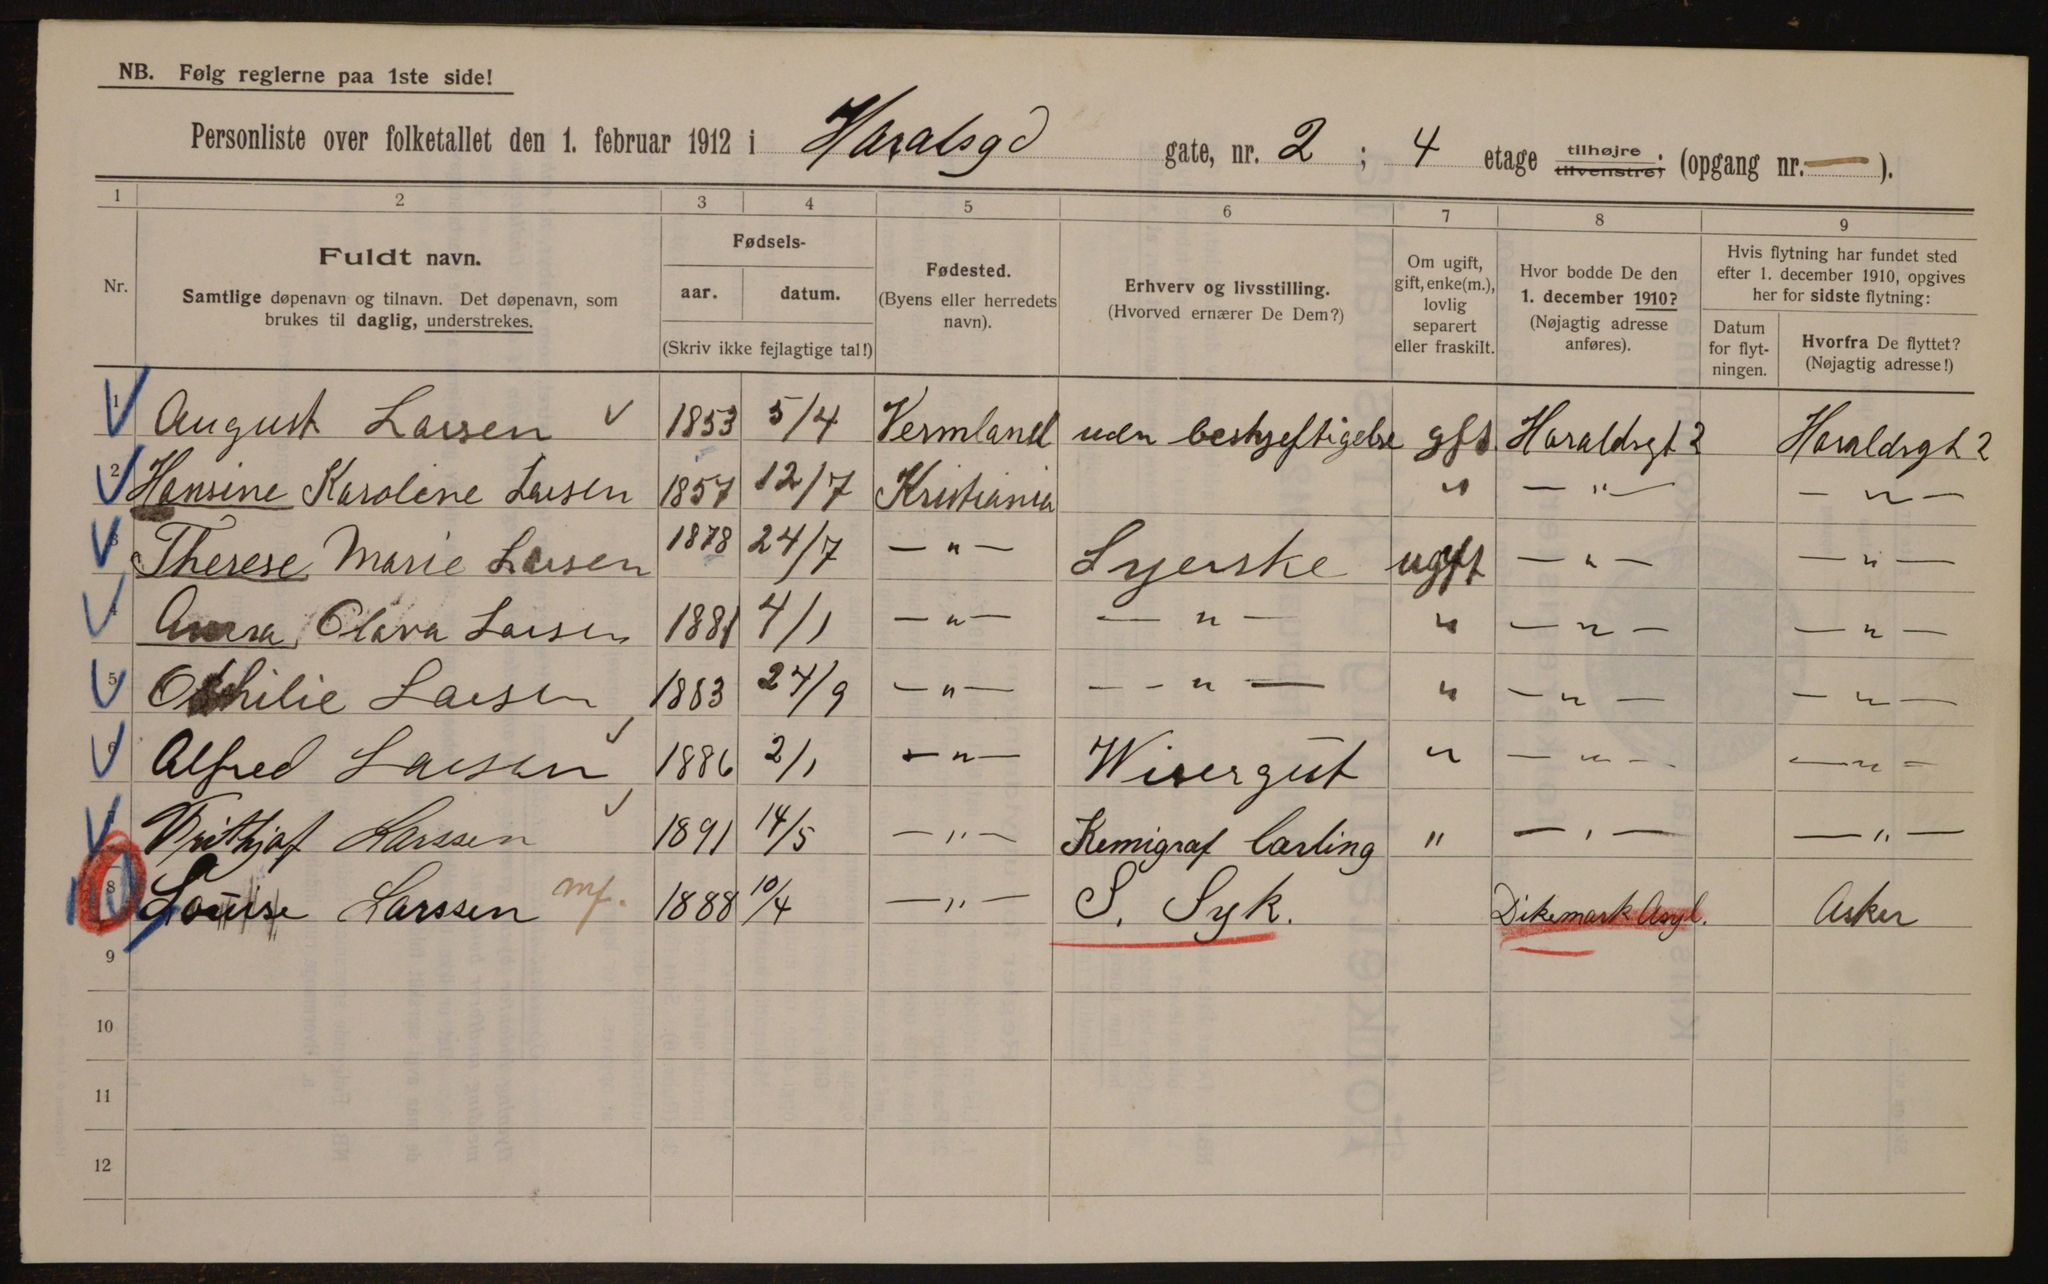 NB. Følg reglerne paa 1ste side!
Personliste over folketallet den 1. februar 1912 i Haralsgd gate, nr. 2 ; 4 etage tilhøjre tilvenstre; (opgang nr. — ).
1 2 3 4 5 6 7 8 9
Nr.
Fuldt navn.
Samtlige døpenavn og tilnavn. Det døpenavn, som
brukes til daglig, understrekes.
Fødsels-
aar. datum.
(Skriv ikke fejlagtige tal!)
Fødested.
(Byens eller herredets
navn).
Erhverv og livsstilling.
(Hvorved ernærer De Dem?)
Om ugift,
gift, enke(m.),
lovlig
separert
eller fraskilt.
Hvor bodde De den
1. december 1910?
(Nøjagtig adresse
anføres).
Hvis flytning har fundet sted
efter 1. december 1910, opgives
her for sidste flytning:
Datum
for flyt-
ningen.
Hvorfra De flyttet?
(Nøjagtig adresse!)
1 August Larsen 1853 5/4 Vermland uden beskjeftigelse gft Haraldsgt 2 Haraldsgt 2
2 Hansine Karoline Larsen 1857 12/7 Kristiania " — " — — " —
3 Therese Marie Larsen 1878 24/7 — " — Syerske ugft — " — — " —
4 Anna Olava Larsen 1881 4/1 — " — — " — " — " — — " —
5 Othilie Larsen 1883 24/9 — " — — " — " — " — — " —
6 Alfred Larsen 1886 2/1 — " — Wisergut " — " — — " —
7 Frithjof Larssen 1891 14/5 — " — Kemigraf Lærling " — " — — " —
8 Louise Larssen mf. 1888 10/4 — " — S. Syk. Dikemark Asyl. Asker
9
10
11
12